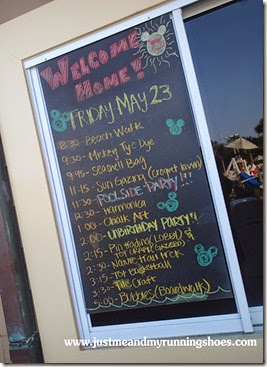 WELCOME
HOME!
FRIDAY MAY 23
8:30 - Beach Walk
9:30 - Mickey Tye Dye
9:45 - Seashell Bag
11:15 - Sun Gazing (Croquet lawn)
11:30 POOLSIDE PARTY!!!
12:30 - Harmonica
1:00 - Chalk Art
2:00 - UNBIRTHDAY PARTY!!
2:15 - Pin trading (LOBBY) &
2:30 - Nature trail trek
3:15 - Toy Basketball
3:30 - Tile Craft
5:00 - Bubbles (Boardwalk)
www.justmeandmyrunningshoes.com